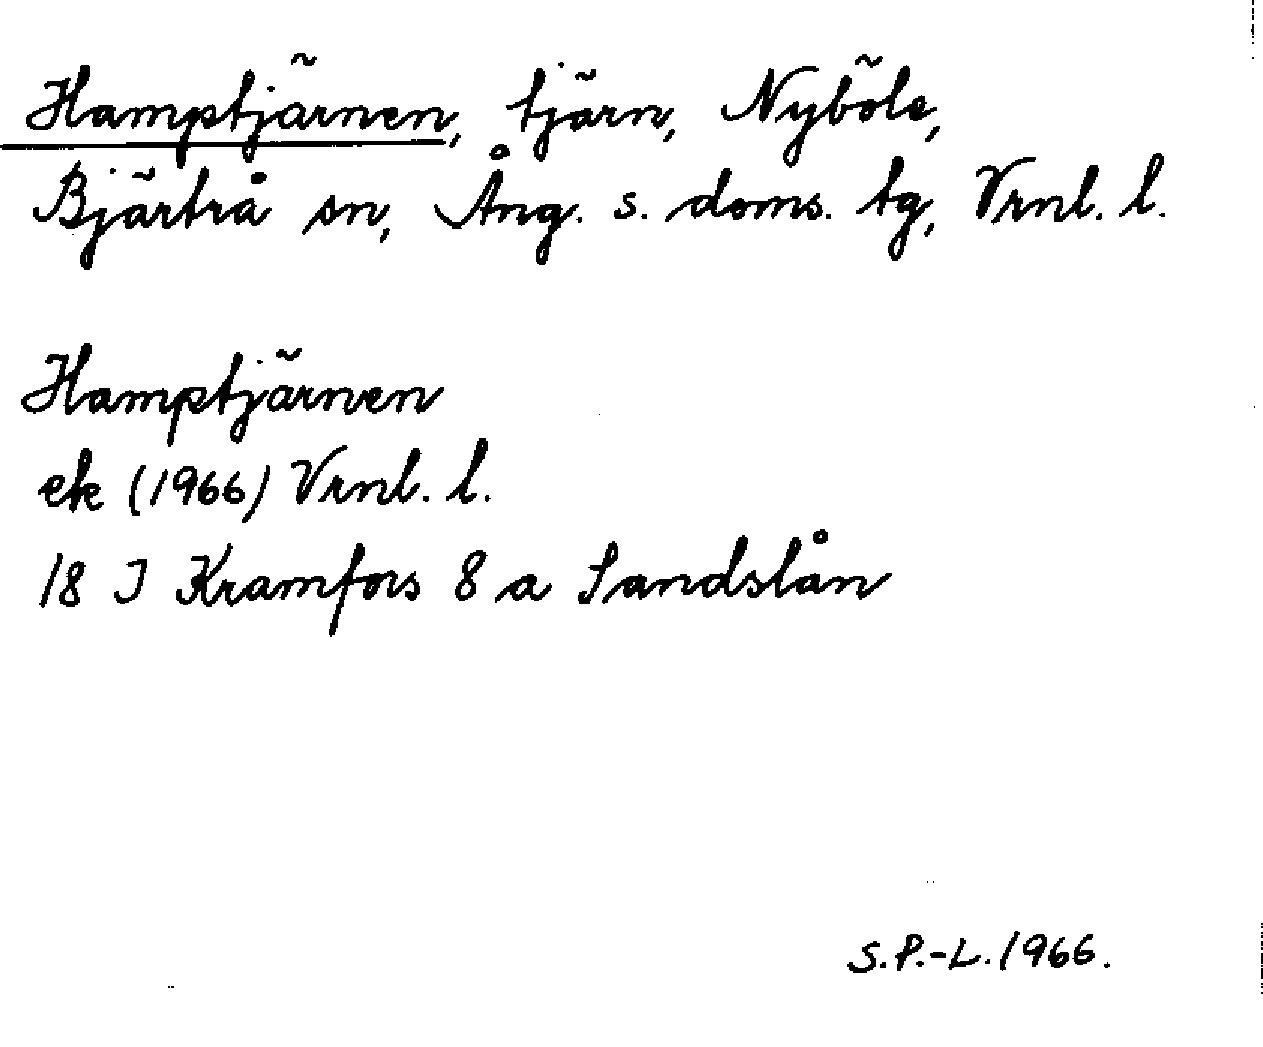 Hamptjärnen, tjärn, Nyböle,
Bjärtrå sn, Ång. s. doms. tg, Vrnl. l.
Hamptjärnen
ek (1966) Vrnl. l.
18 J Kramfors 8 a Sandslån
S.P.-L. 1966.